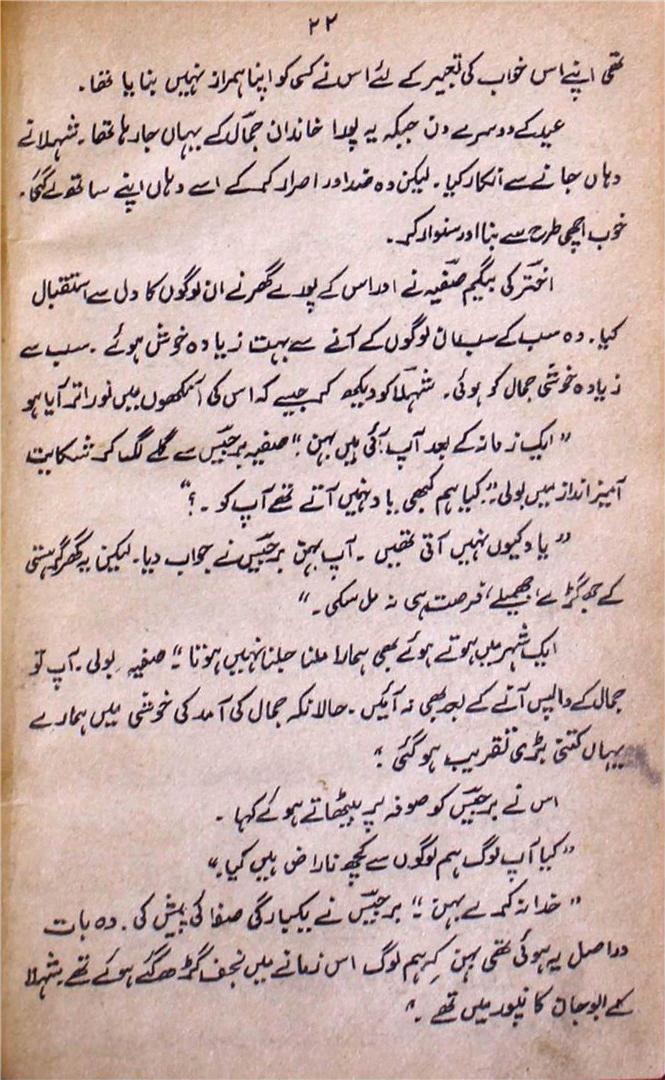 ۲۲
تھی اپنے اس خواب کی تعبیر کے لئے اس نے کسی کو اپنا ہمراز نہیں بنایا تھا۔
عید کے دوسرے دن جبکہ یہ پورا خاندان جمال کے یہاں جارہا تھا۔ شہلا نے
وہاں جانے سے انکار کیا۔ لیکن وہ ضد اور اصرار کر کے اسے وہاں اپنے ساتھ لے گئی۔
خوب اچھی طرح سے بنا اور سنوار کر۔
اختر کی بیگم صفیہ نے اور اس کے پورے گھر نے ان لوگوں کا دل سے استقبال
کیا۔ وہ سب کے سب ان لوگوں کے آنے سے بہت زیادہ خوش ہوئے۔ سب سے
زیادہ خوشی جمال کو ہوئی۔ شہلا کو دیکھ کر جیسے کہ اس کی آنکھوں میں نور اتر آیا ہو
”ایک زمانہ کے بعد آپ آئی ہیں بہن“ صفیہ برجیس سے گلے لگ کر شکایت
آمیز انداز میں بولی۔ ”کیا ہم کبھی یاد نہیں آتے تھے آپ کو۔؟“
”یاد کیوں نہیں آتی تھیں۔ آپ بہن برجیس نے جواب دیا۔ لیکن یہ گھر گرہستی
کے جھگڑے، جھمیلے، فرصت ہی نہ مل سکی۔“
ایک شہر میں ہوتے ہوئے بھی ہمارا ملنا جلنا نہیں ہوتا“ صفیہ بولی۔ آپ تو
جمال کے واپس آنے کے بعد بھی نہ آئیں۔ حالانکہ جمال کی آمد کی خوشی میں ہمارے
یہاں کتنی بڑی تقریب ہوگئی“
اس نے برجیس کو صوفہ پر بیٹھاتے ہوئے کہا۔
”کیا آپ لوگ ہم لوگوں سے کچھ ناراض ہیں کیا۔“
”خدا نہ کرے بہن“ برجیس نے یکبارگی صفائی پیش کی۔ وہ بات
دراصل یہ ہوئی تھی بہن کہ ہم لوگ اس زمانے میں نجف گڑھ گئے ہوئے تھے۔ شہلا
کے ابو جان کانپور میں تھے۔“